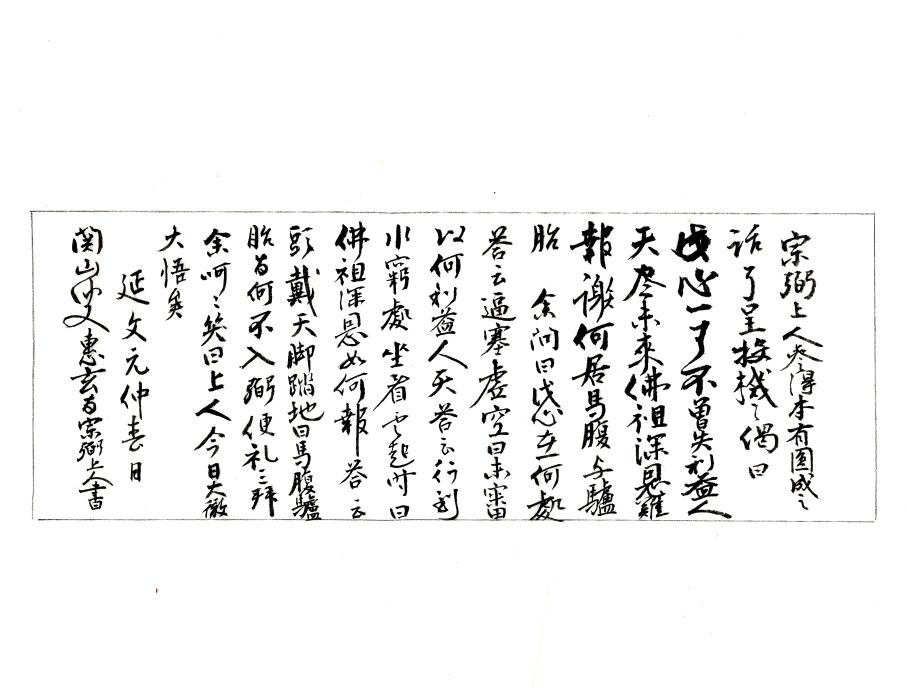 宗弼上人参得本有圓成之
話了呈投機之偈曰
此心一了不曽失利益人
天尽未来佛祖深恩難
報謝何居馬腹与驢
胎　余問曰此心在何處
荅云逼塞虚空曰未審
以何利益人天荅云行到
水窮處坐看雲起時曰
佛祖深恩如何報荅云
頭戴天脚踏地曰馬腹驢
胎為何不入弼便礼三拜
余呵々笑曰上人今日大徹
大悟矣
延文元仲春日
関山叟惠玄為宗弼上人書